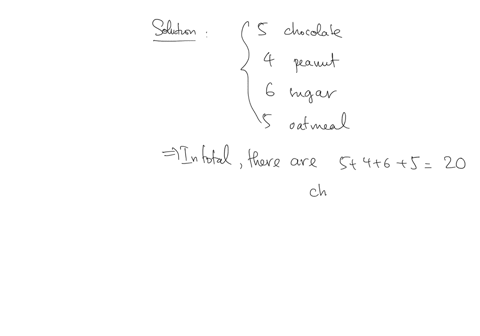 Solution : 5 chocolate
4 peanut
6 sugar
5 oatmeal
⇒ In total, there are 5+4+6+5 = 20
ch